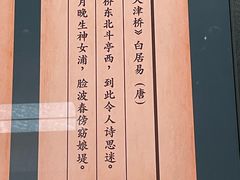 天津桥》白居易（唐）
桥东北斗亭西，到此令人诗思迷。
月晚生神女浦，脸波春傍窈娘堤。